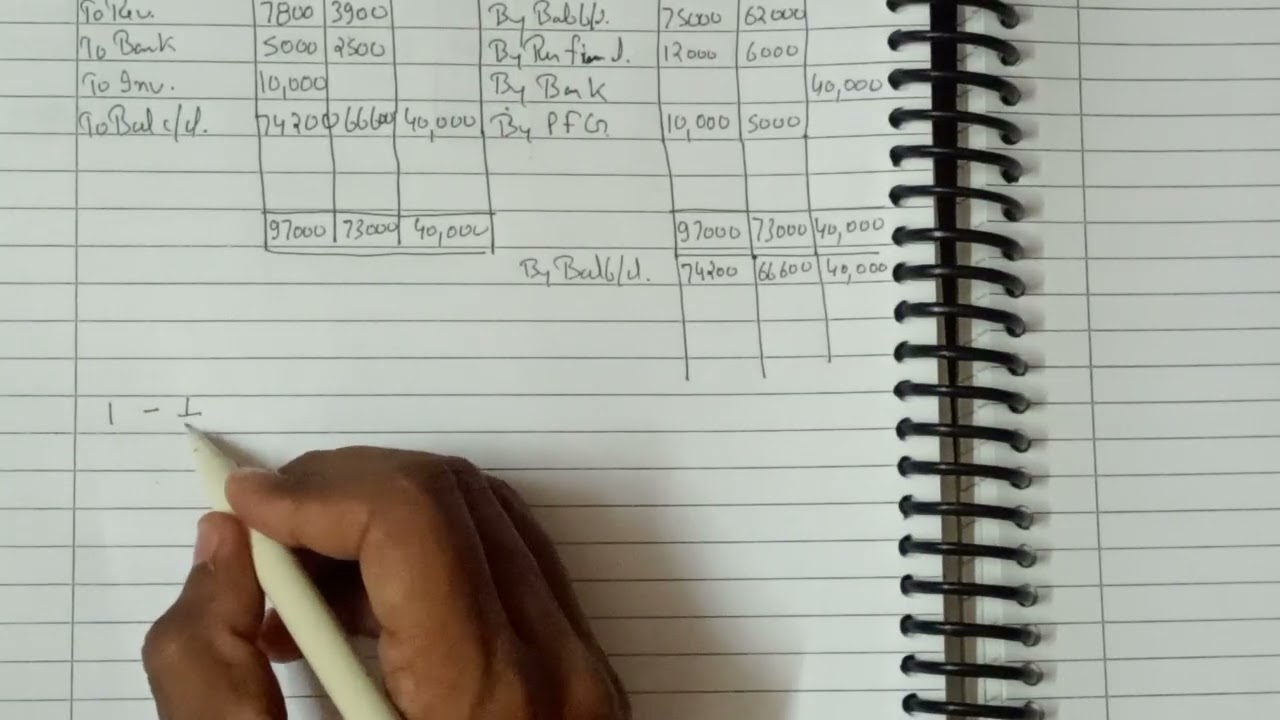 To Rev. 7800 3900 By Bal b/d. 75000 62000
To Bank 5000 2500 By Res fund. 12000 6000
To Inv. 10,000 By Bank 40,000
To Bal c/d. 74200 66600 40,000 By PFG 10,000 5000
97000 73000 40,000 97000 73000 40,000
By Bal b/d. 74200 66600 40,000
1 - 1